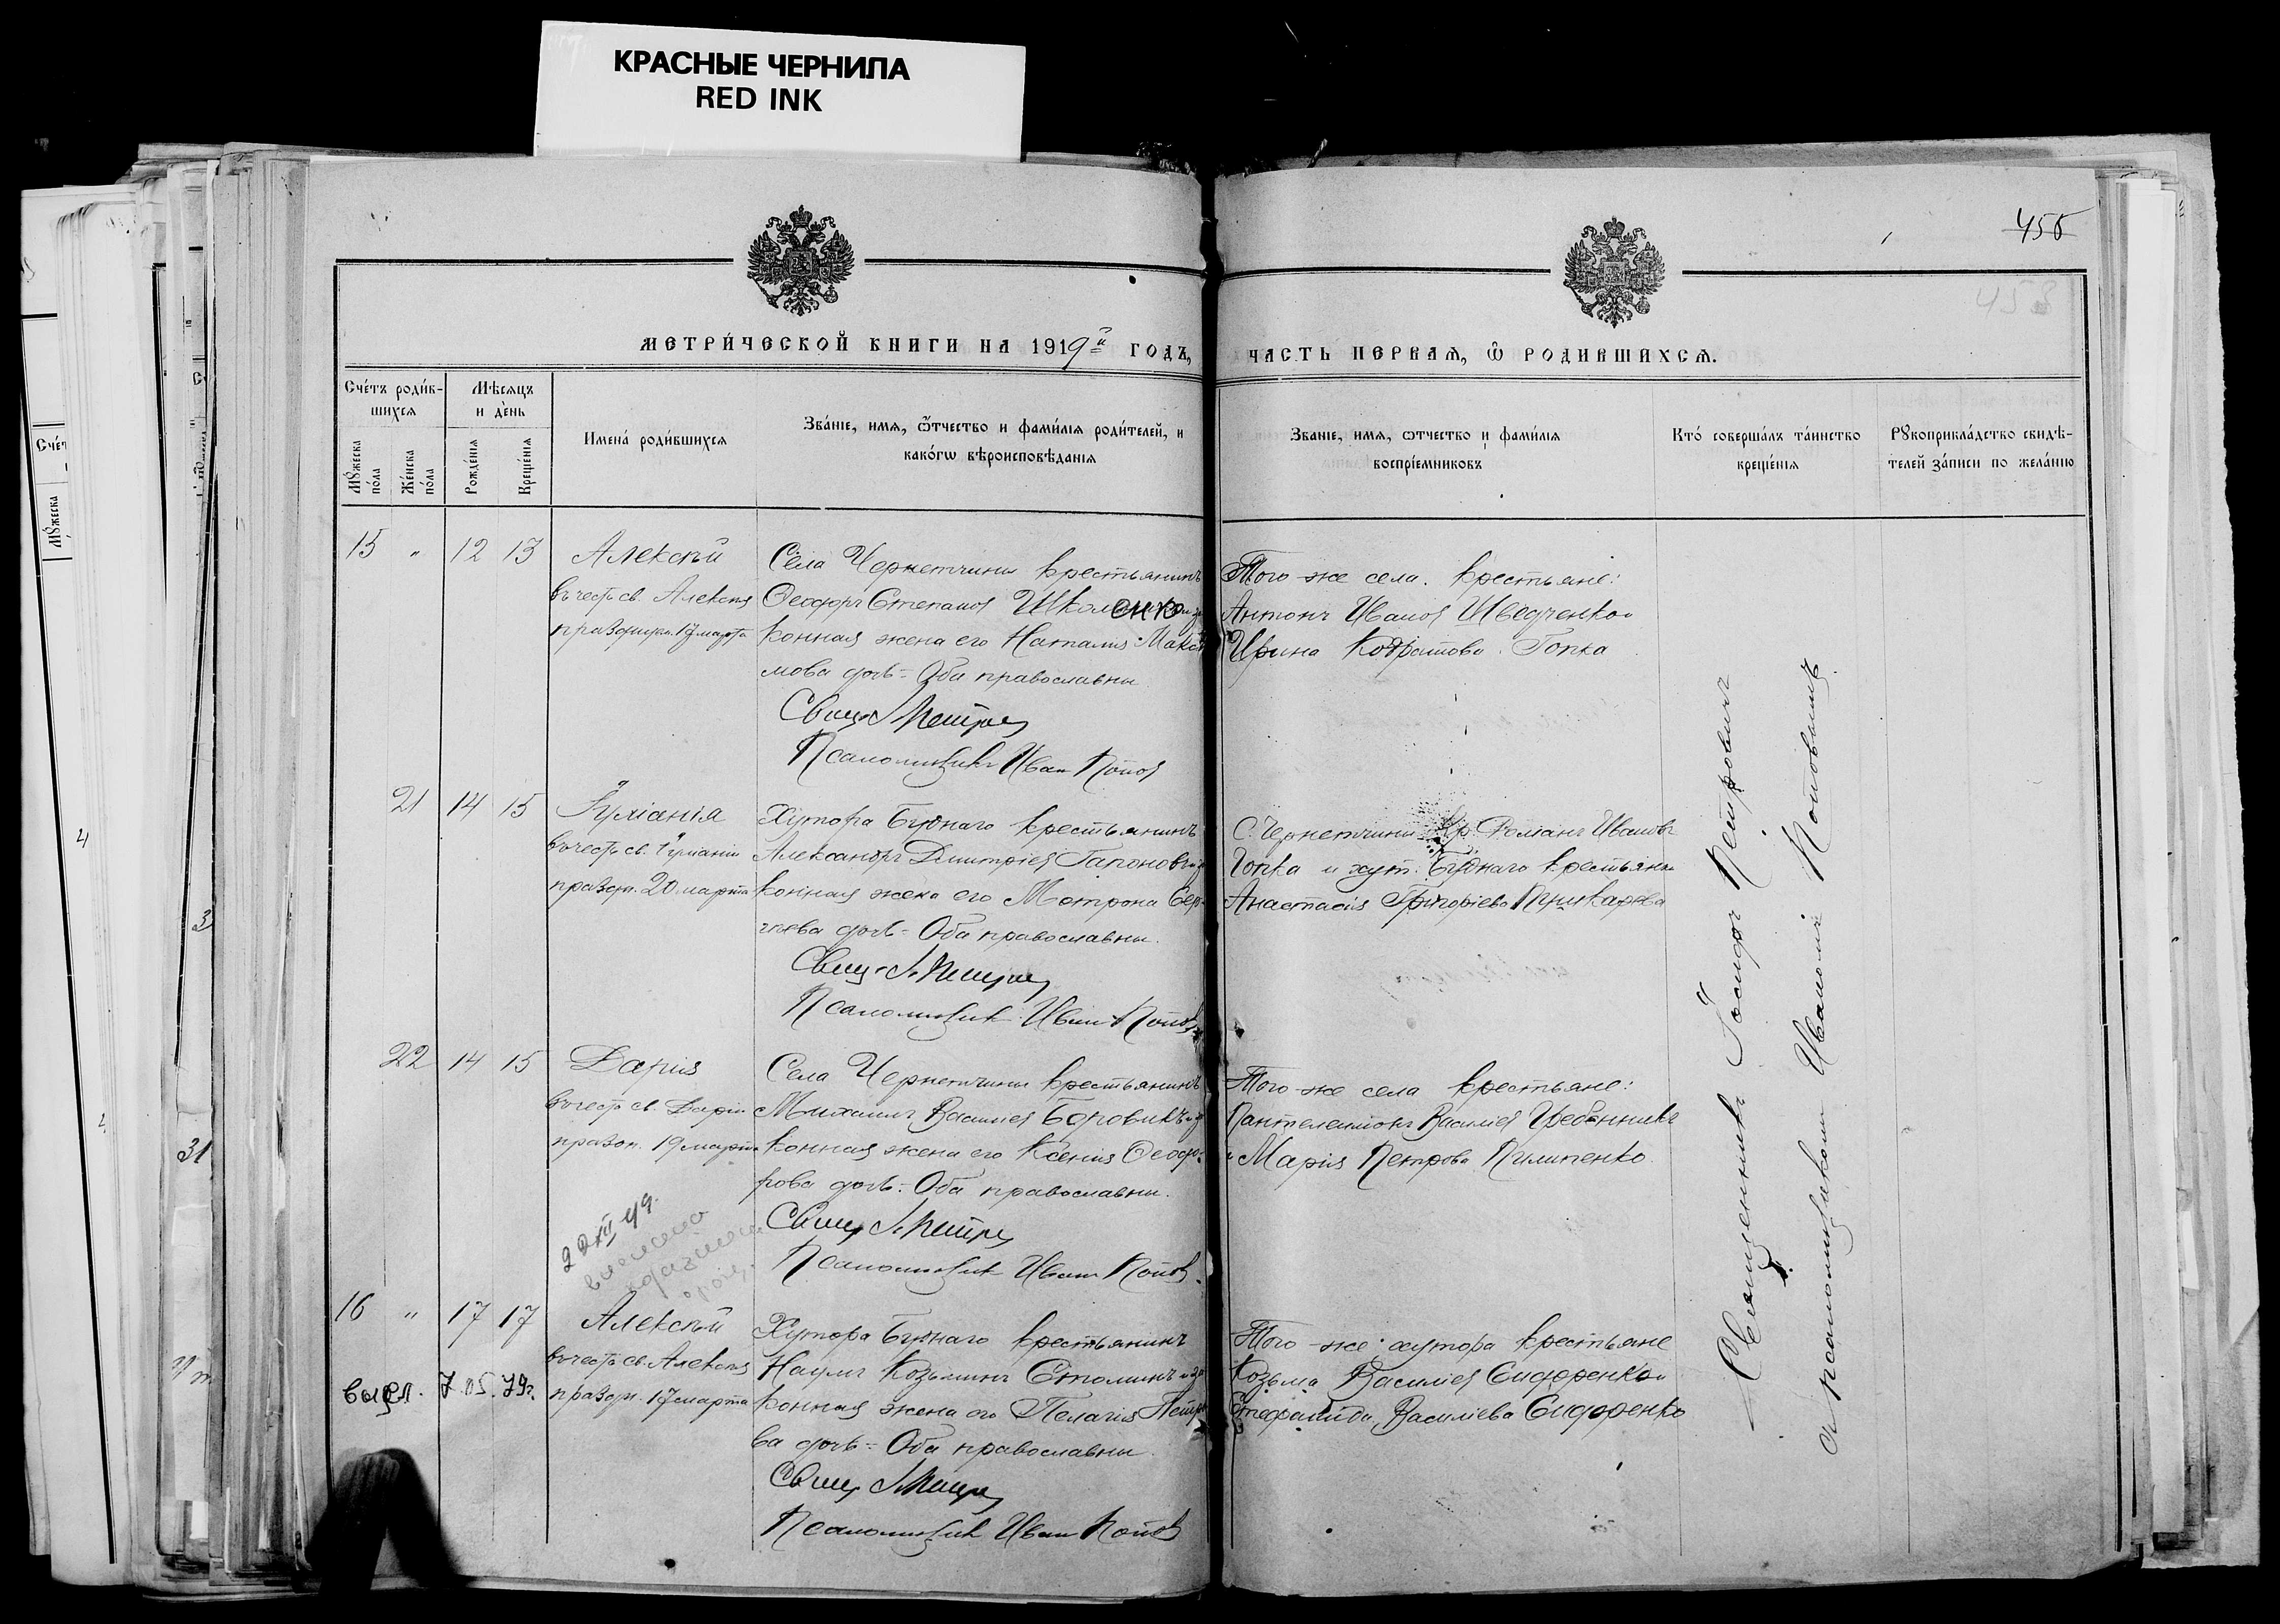 КРАСНЫЕ ЧЕРНИЛА
RED INK
455
458
МЕТРИ́ЧЕСКОЙ КНИГИ НА 1919й ГОДЪ,
ЧАСТЬ ПЕРВАѦ, Ѡ҆ РОДИВШИХСѦ.
Сче́тъ роди́в-
шихсѧ
Мѣ́сѧцъ
и де́нь
Мꙋ́жеска
по́ла
Же́нска
по́ла
Рожде́нїѧ
Креще́нїѧ
Имена̀ роди́вшихсѧ
Зва́нїе, имѧ, ѻ҆́тчество и фами́лїѧ роди́телей, и
како́гѡ вѣроисповѣ́данїѧ
Зва́нїе, имѧ, ѻтчество и фами́лїѧ
воспрїе́мниковъ
Кто̀ соверша́лъ та́инство
креще́нїѧ
Рꙋкоприкла́дство свидѣ́-
телей за́писи по жела́нїю
15 " 12 13
Алексѣй
въ честь св. Алексія
праздн. 17 марта
Села Чернетчины крестьянинъ
Ѳеодоръ Степановъ Школенко и за
конная жена его Наталія Макси
мова дочь - Оба православны
Свящ. І. Петров
Псаломщикъ Иван Попов
Того-же села крестьяне:
Антонъ Ивановъ Шведченко и
Ирина Кодратова Гопка
21 14 15
Іуліанія
въ честь св. Іуліаніи
праздн. 20 марта
Хутора Буднаго крестьянинъ
Александръ Димитріевъ Гапоновъ и за
конная жена его Мотрона Сер-
гѣева дочь - Оба православны.
Свящ. І. Петров
Псаломщик Иван Попов
С. Чернетчины кр. Романъ Ивановъ
Гопка и хут. Буднаго крестьянка
Анастасія Григоріева Пушкарева
22 14 15
Дарія
въ честь св. Даріи
праздн. 19 марта
Села Чернетчины крестьянинъ
Михаилъ Василіевъ Боровикъ и за
конная жена его Ксенія Ѳеодо-
рова дочь - Оба православны.
Свящ. І. Петров
Псаломщик Иван Попов
Того-же села крестьяне:
Пантелеимонъ Василіев Гребенникъ
и Марія Петрова Пилипенко.
22 XII 49.
16 " 17 17
Алексѣй
въ честь св. Алексія
праздн. 17 марта
выдл. 7.05.79г.
Хутора Буднаго крестьянинъ
Наумъ Козьминъ Стоминъ и за
конная жена его Пелагія Петро
ва дочь - Оба православны.
Свящ. І. Петров
Псаломщик Иван Попов
Того-же хутора крестьяне
Козьма Василіев Сидоренко и
Стефанида Василіева Сидоренко
Священникъ Іосифъ Петровичъ
съ псаломщикомъ Иваномъ Поповымъ.